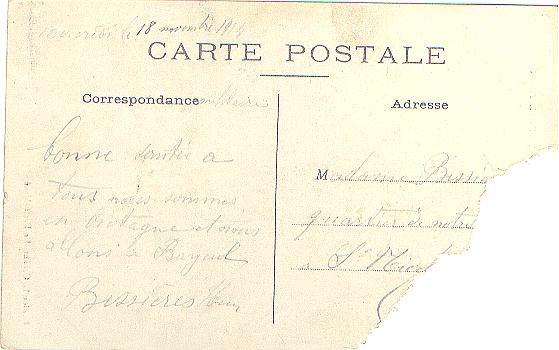 Mercredi le 18 novembre 1914
CARTE POSTALE
Correspondance militaire
Adresse
bonne santée a
tous nous sommes
en Bretagne et nous
allons a
Bissières
Madame Bissiè
quartier de notre
a St